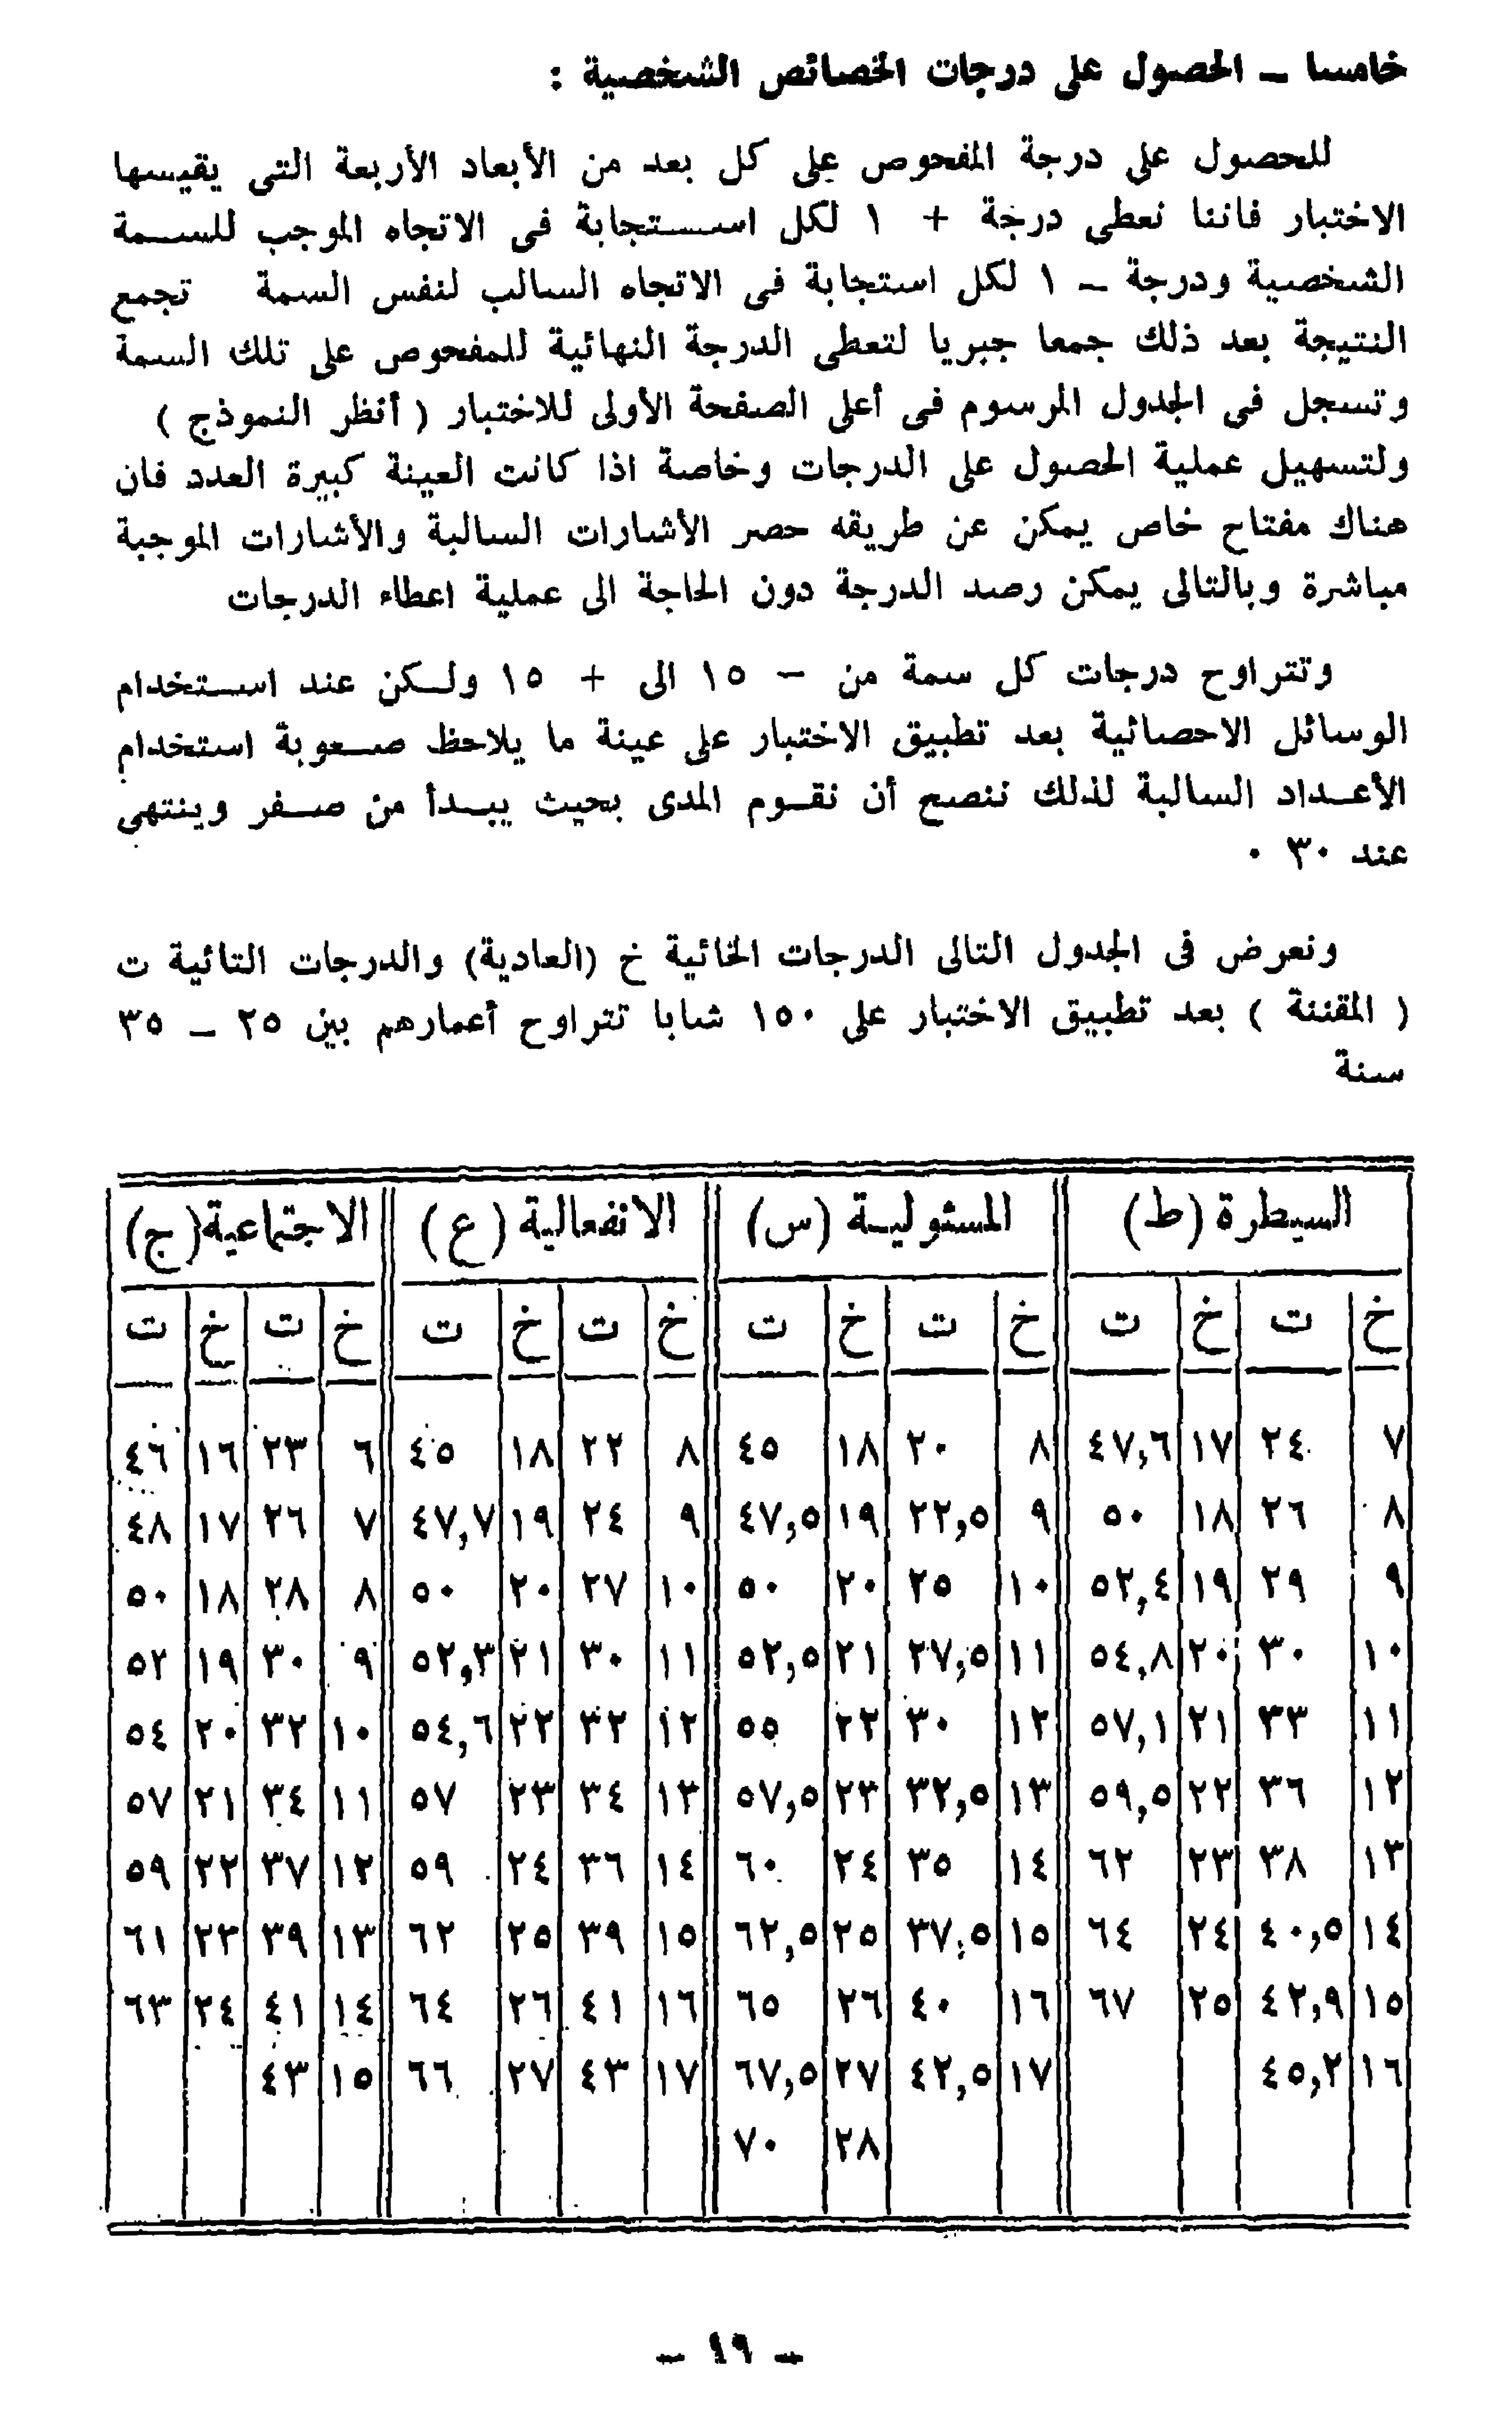 خامسا ـ الحصول على درجات الخصائص الشخصية :
للحصول على درجة المفحوص على كل بعد من الأبعاد الأربعة التى يقيسها
الاختبار فاننا نعطى درجة + ١ لكل اســـتجابة فى الاتجاه الموجب للســـمة
الشخصية ودرجة ـ ١ لكل استجابة فى الاتجاه السالب لنفس السمة تجمع
النتيجة بعد ذلك جمعا جبريا لتعطى الدرجة النهائية للمفحوص على تلك السمة
وتسجل فى الجدول المرسوم فى أعلى الصفحة الأولى للاختبار ( أنظر النموذج )
ولتسهيل عملية الحصول على الدرجات وخاصة اذا كانت العينة كبيرة العدد فان
هناك مفتاح خاص يمكن عن طريقه حصر الأشارات السالبة والأشارات الموجبة
مباشرة وبالتالى يمكن رصد الدرجة دون الحاجة الى عملية اعطاء الدرجات
وتتراوح درجات كل سمة من – ١٥ الى + ١٥ ولـكن عند اســتخدام
الوسائل الاحصائية بعد تطبيق الاختبار على عينة ما يلاحظ صـعوبة استخدام
الأعـداد السالبة لذلك ننصح أن نقـوم المدى بحيث يبـدأ من صـفر وينتهى
عند ٣٠ ٠
ونعرض فى الجدول التالى الدرجات الخائية خ (العادية) والدرجات التائية ت
( المقننة ) بعد تطبيق الاختبار على ١٥٠ شابا تتراوح أعمارهم بين ٢٥ ـ ٣٥
سنة
السيطرة (ط) المسئوليـة (س) الانفعالية (ع) الاجتماعية (ج)
خ ت خ ت خ ت خ ت خ ت خ ت خ ت خ ت
٧ ٢٤ ١٧ ٤٧,٦ ٨ ٢٠ ١٨ ٤٥ ٨ ٢٢ ١٨ ٤٥ ٦ ٢٣ ١٦ ٤٦
٨ ٢٦ ١٨ ٥٠ ٩ ٢٢,٥ ١٩ ٤٧,٥ ٩ ٢٤ ١٩ ٤٧,٧ ٧ ٢٦ ١٧ ٤٨
٩ ٢٩ ١٩ ٥٢,٤ ١٠ ٢٥ ٢٠ ٥٠ ١٠ ٢٧ ٢٠ ٥٠ ٨ ٢٨ ١٨ ٥٠
١٠ ٣٠ ٢٠ ٥٤,٨ ١١ ٢٧,٥ ٢١ ٥٢,٥ ١١ ٣٠ ٢١ ٥٢,٣ ٩ ٣٠ ١٩ ٥٢
١١ ٣٣ ٢١ ٥٧,١ ١٢ ٣٠ ٢٢ ٥٥ ١٢ ٣٢ ٢٢ ٥٤,٦ ١٠ ٣٢ ٢٠ ٥٤
١٢ ٣٦ ٢٢ ٥٩,٥ ١٣ ٣٢,٥ ٢٣ ٥٧,٥ ١٣ ٣٤ ٢٣ ٥٧ ١١ ٣٤ ٢١ ٥٧
١٣ ٣٨ ٢٣ ٦٢ ١٤ ٣٥ ٢٤ ٦٠ ١٤ ٣٦ ٢٤ ٥٩ ١٢ ٣٧ ٢٢ ٥٩
١٤ ٤٠,٥ ٢٤ ٦٤ ١٥ ٣٧,٥ ٢٥ ٦٢,٥ ١٥ ٣٩ ٢٥ ٦٢ ١٣ ٣٩ ٢٣ ٦١
١٥ ٤٢,٩ ٢٥ ٦٧ ١٦ ٤٠ ٢٦ ٦٥ ١٦ ٤١ ٢٦ ٦٤ ١٤ ٤١ ٢٤ ٦٣
١٦ ٤٥,٢ ١٧ ٤٢,٥ ٢٧ ٦٧,٥ ١٧ ٤٣ ٢٧ ٦٦ ١٥ ٤٣
٢٨ ٧٠
ـ ١٩ ـ